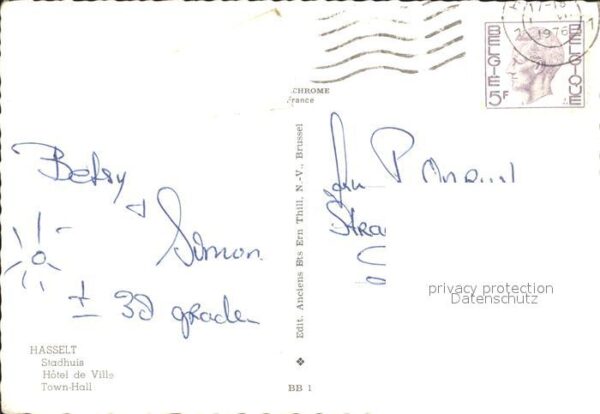 17-18
1976
BELGIE
5F
BELGIQUE
CHROME
France
Betsy
Simon
± 38 graden
HASSELT
Stadhuis
Hôtel de Ville
Town-Hall
Edit. Anciens Ets Ern Thill, N.-V., Brussel
BB 1
P
Stra
privacy protection
Datenschutz